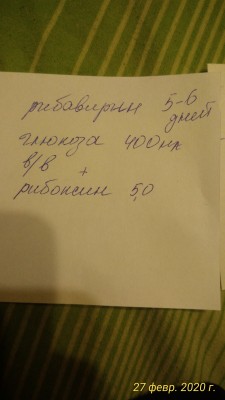 рибавирин 5-6
дней
глюкоза 400мл
в/в +
рибоксин 5,0
27 февр. 2020 г.